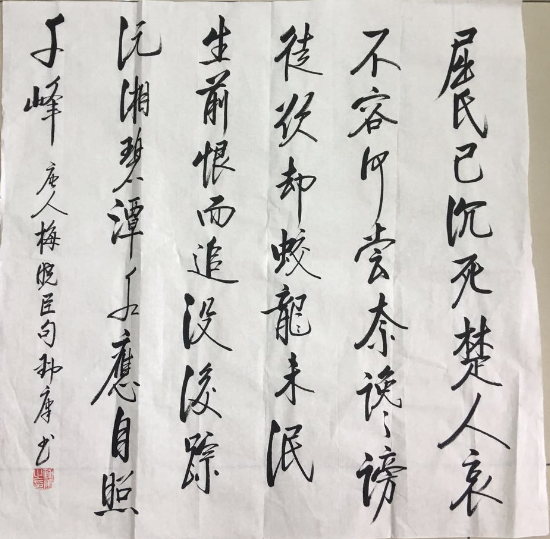 屈氏已沉死楚人哀
不容何尝奈谗谤
徒欲却蛟龍未泯
生前恨而追没後踪
沅湘碧潭水應自照
千峰 唐人梅晓臣句 书